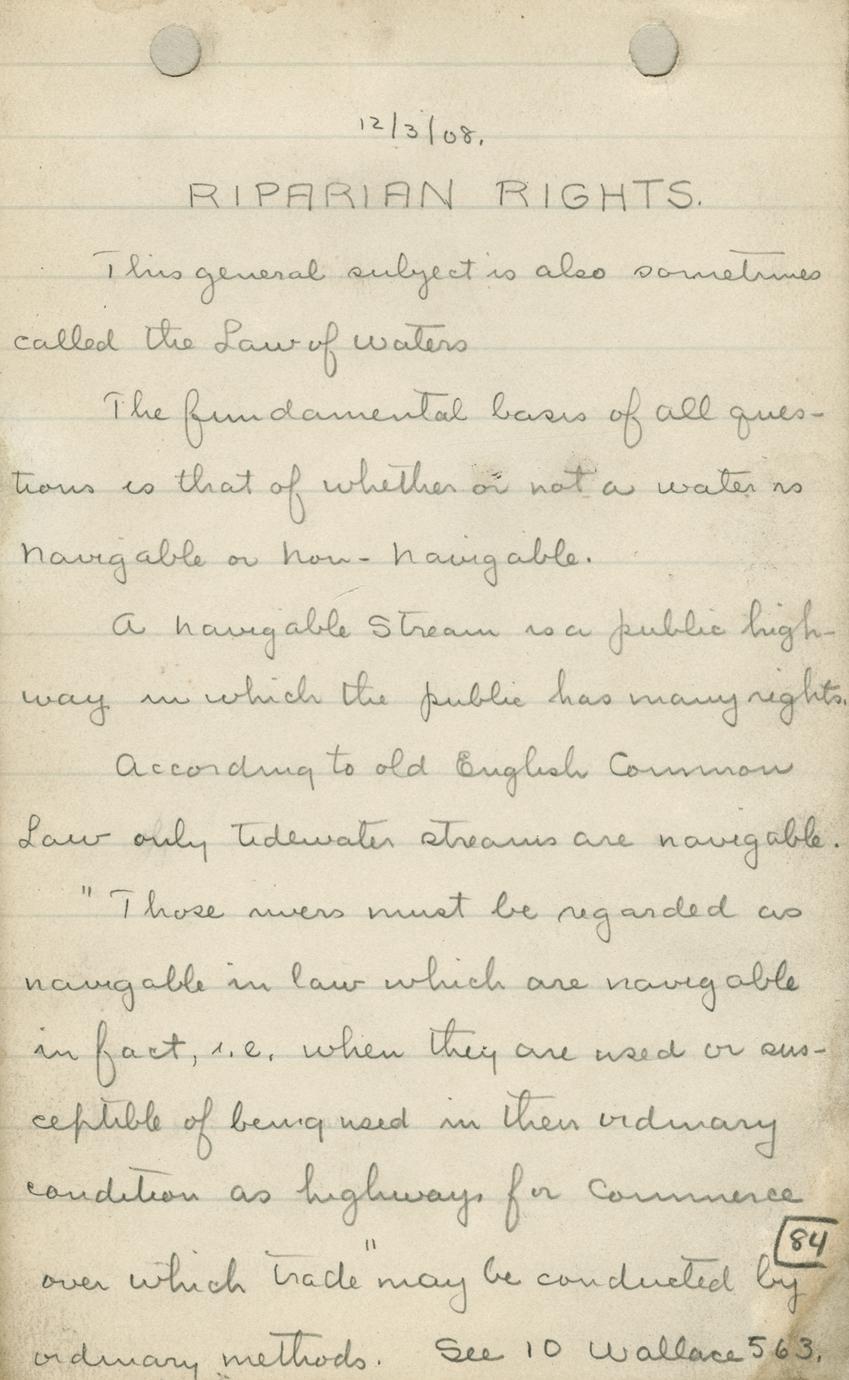 12/3/08.
RIPARIAN RIGHTS.
This general subject is also sometimes
called the Law of waters
The fundamental basis of all ques-
tions is that of whether or not a water is
navigable or non-navigable.
A navigable Stream is a public high-
way in which the public has many rights.
According to old English Common
Law only tidewater streams are navigable.
" Those rivers must be regarded as
navigable in law which are navigable
in fact, i.e. when they are used or sus-
ceptible of being used in their ordinary
condition as highways for Commerce
84
over which trade" may be conducted by
ordinary methods. See 10 Wallace 563.